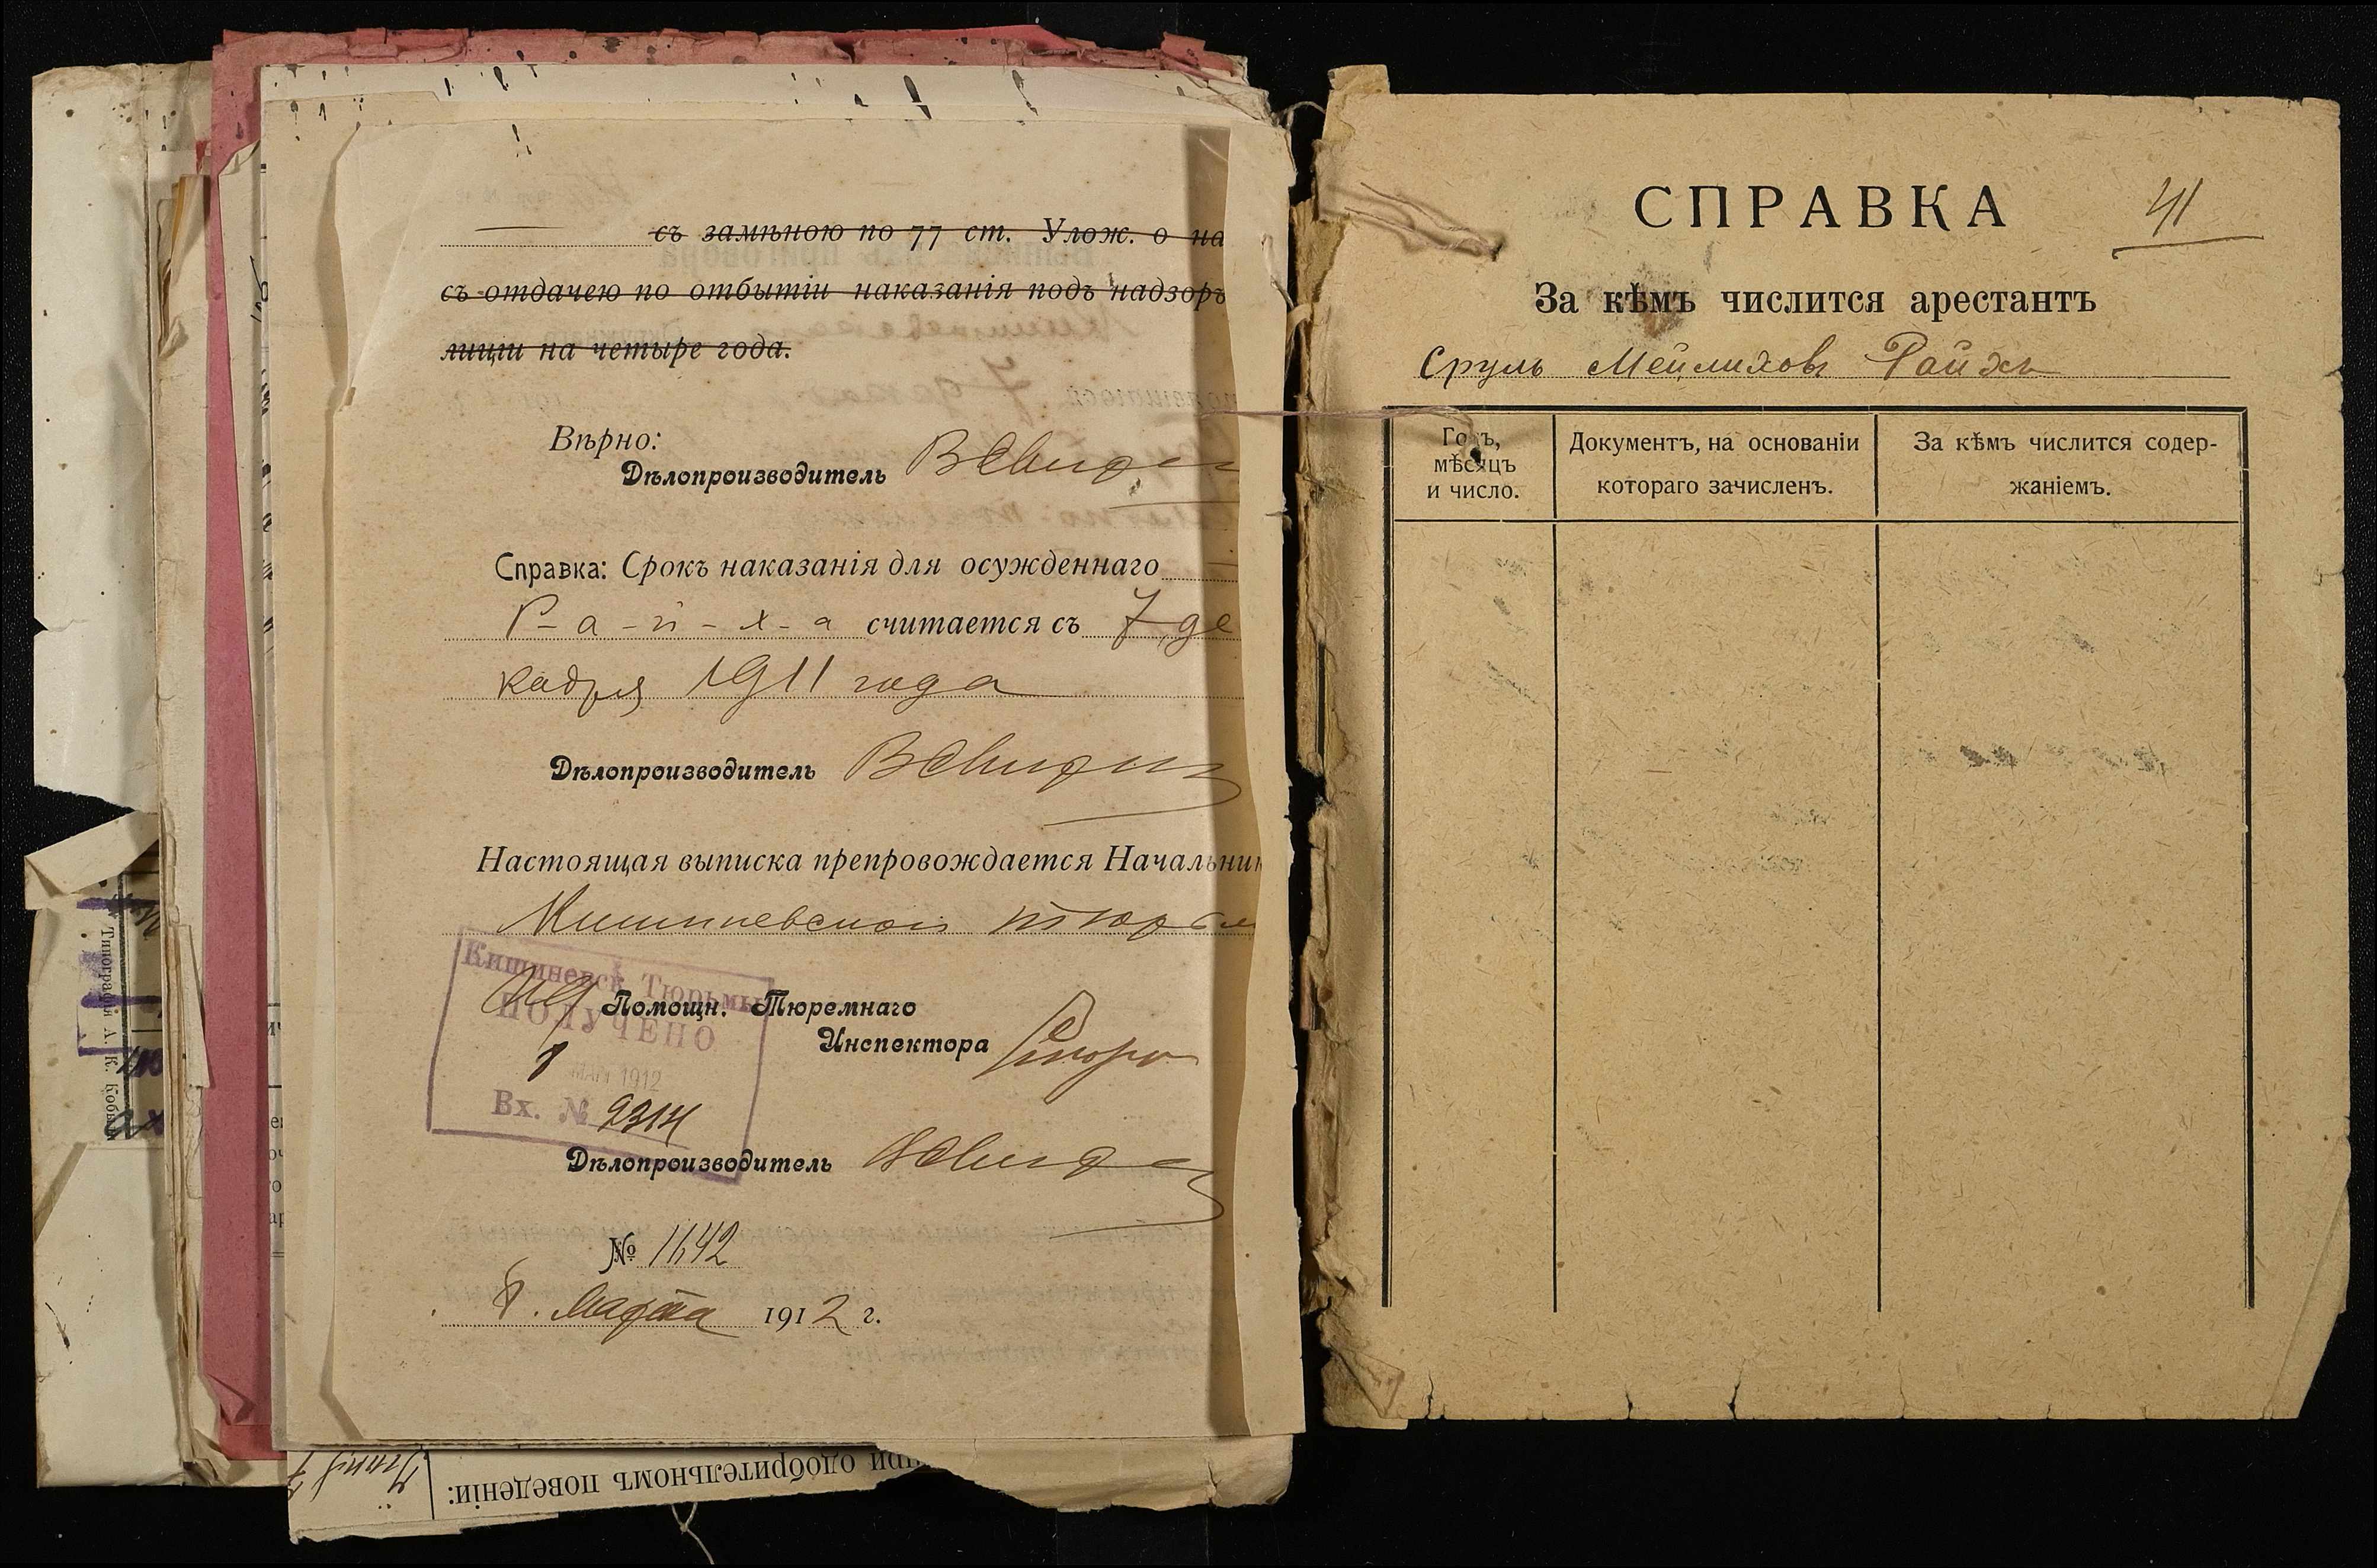 съ замѣною по 77 ст. Улож. о на
съ отдачею по отбытіи наказанія подъ надзоръ
лиціи на четыре года.
Вѣрно:
Дѣлопроизводитель
Справка: Срокъ наказанія для осужденнаго
Р-а-й-х-а считается съ 7 де
кабря 1911 года
Дѣлопроизводитель
Настоящая выписка препровождается Начальник
Кишиневской тюрьм
Кишиневск. Тюрьмы
ПОЛУЧЕНО
МАР 1912
Вх. № 2314
Помощн. Тюремнаго
Инспектора
Дѣлопроизводитель
№ 1642
8. Марта 1912 г.
при одобрительномъ поведеніи:
Типографія А. К. Кобы
СПРАВКА
41
За кѣмъ числится арестантъ
Сруль Мейлиховъ Райхъ
Годъ,
мѣсяцъ
и число.
Документъ, на основаніи
котораго зачисленъ.
За кѣмъ числится содер-
жаніемъ.